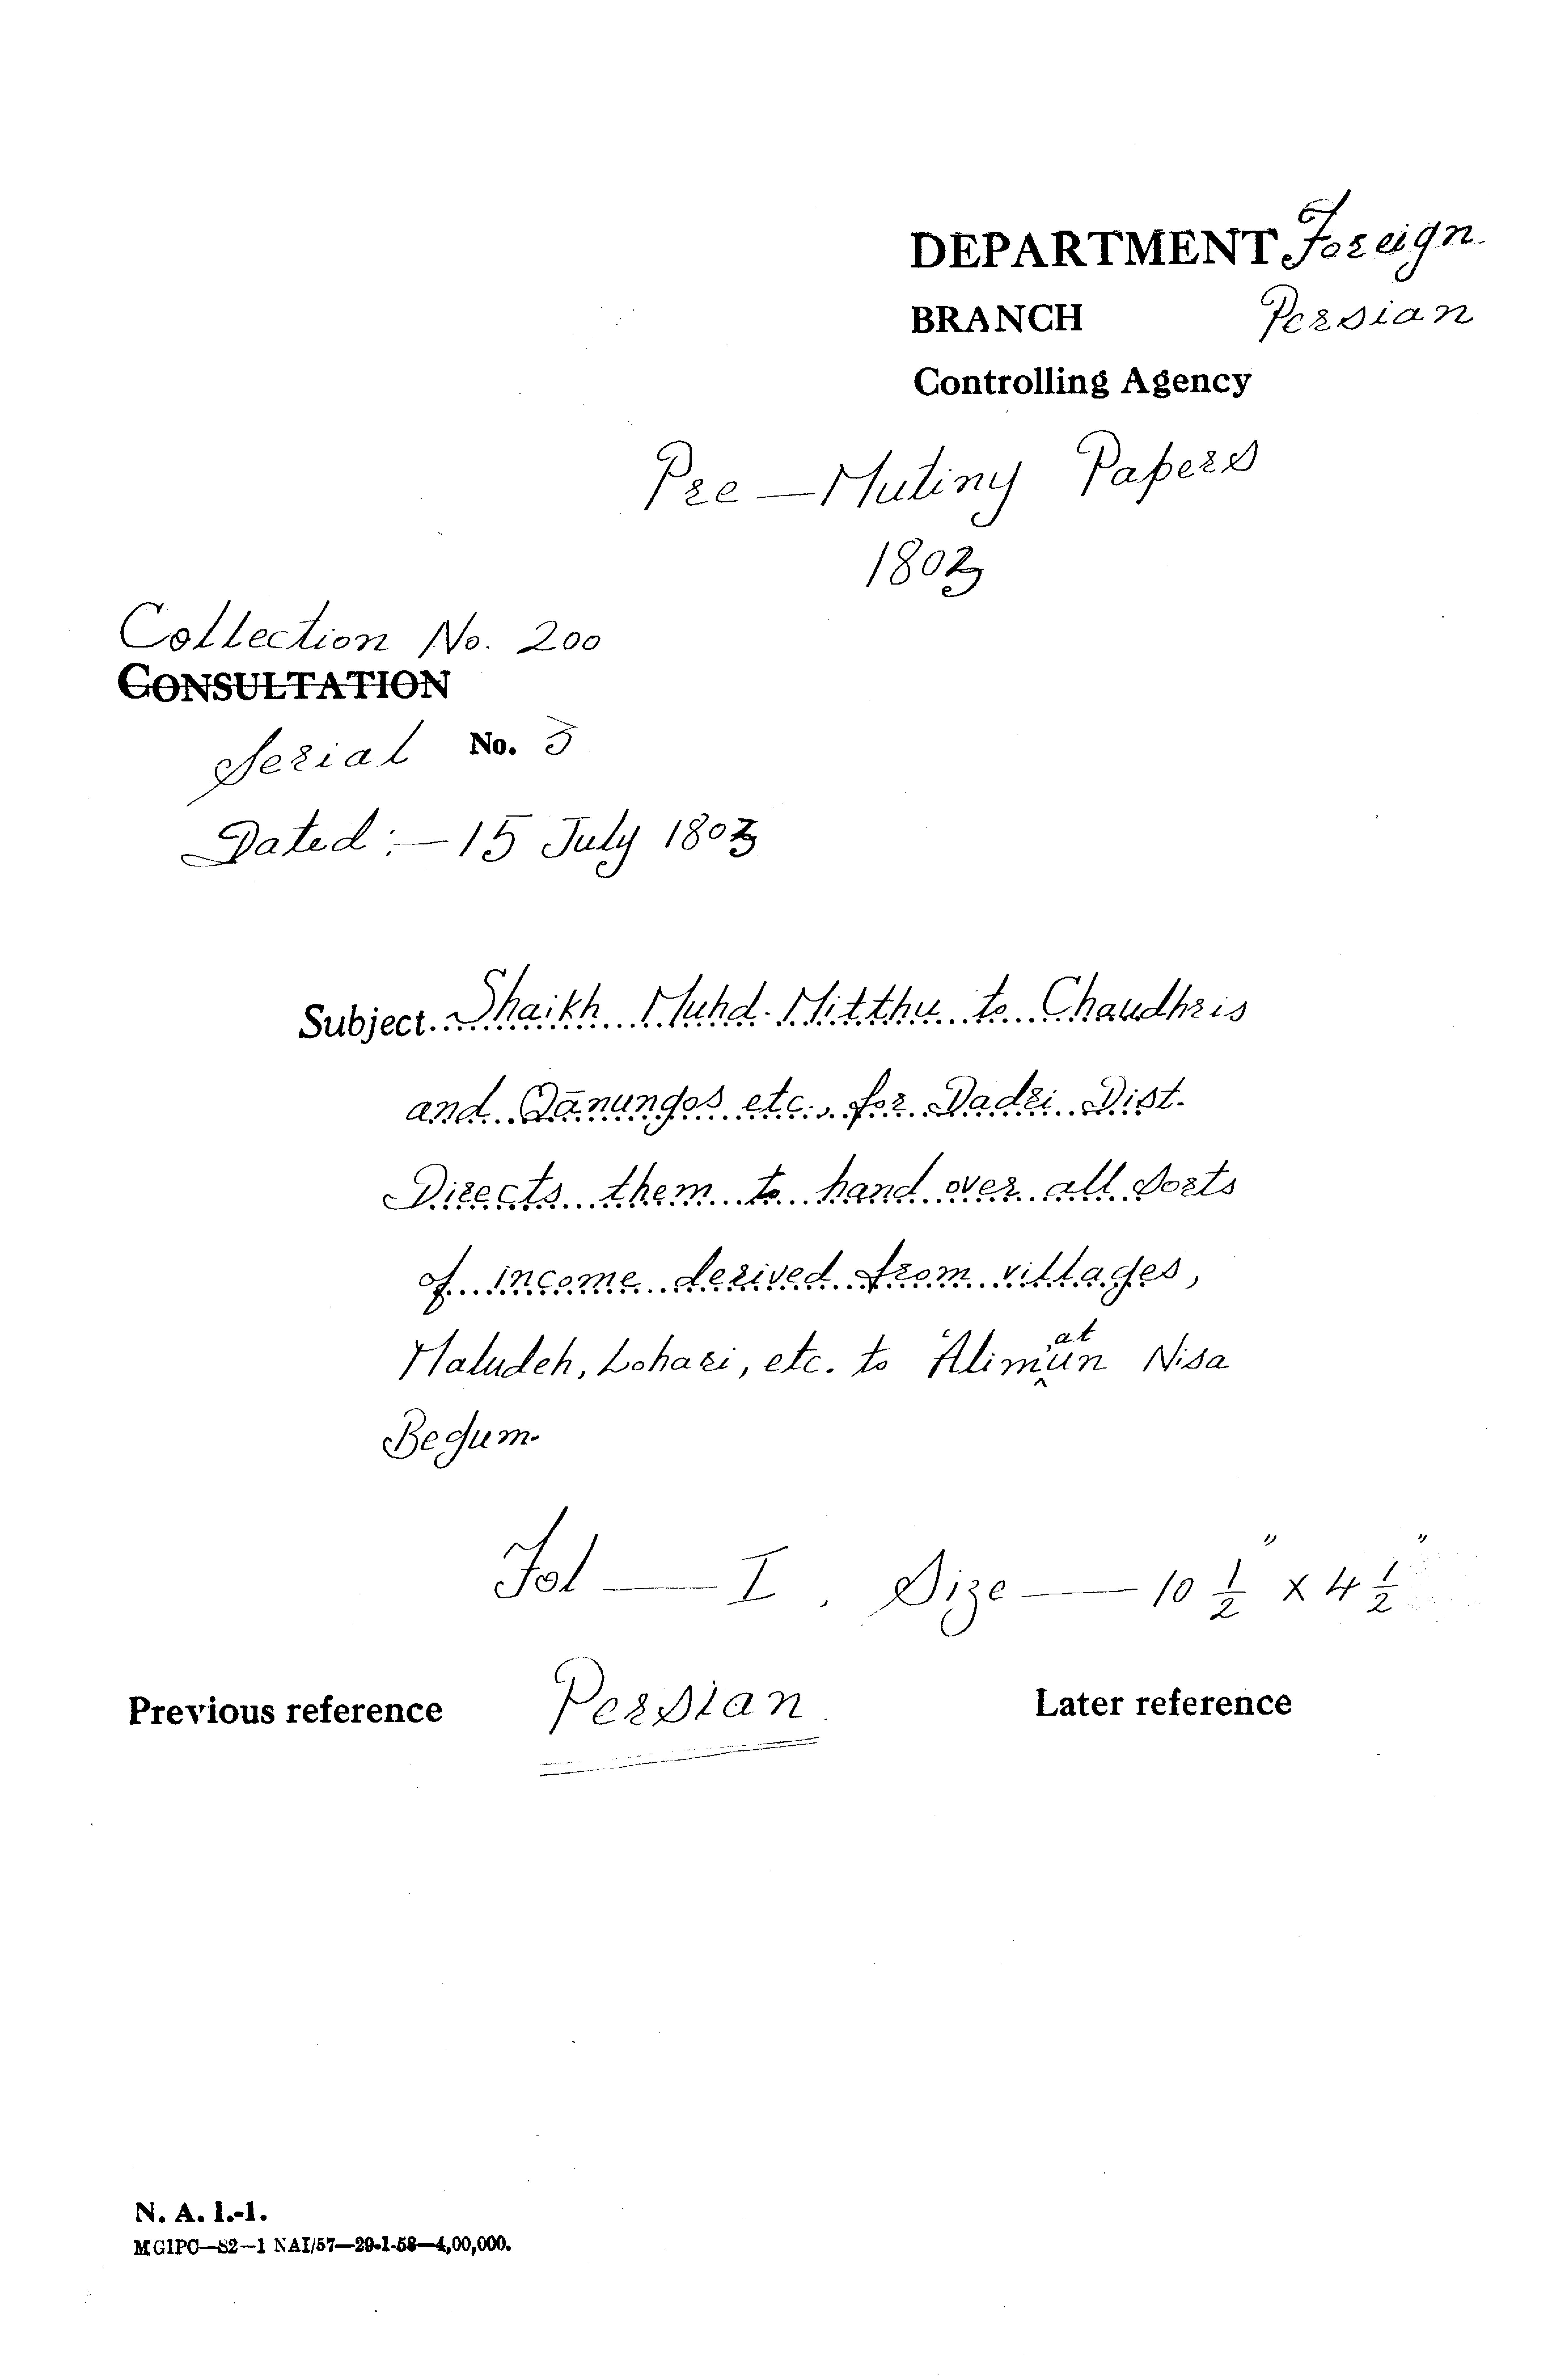 DEPARTMENT Foreign.
BRANCH Persian
Controlling Agency
Pre — Mutiny Papers
1803
Collection No. 200
CONSULTATION
Serial No. 3
Dated :— 15 July 1803
Subject. Shaikh Muhd. Mitthu to Chaudhris
and Qānungos etc., for Dadri Dist.
Directs them to hand over all sorts
of income derived from villages,
Maludeh, Lohari, etc. to
Begum.
Fol — I, Size — 10 1/2" x 4 1/2"
Previous reference Persian. Later reference
N. A. I.-1.
MGIPC—S2—1 NAI/57—29-1-58—4,00,000.